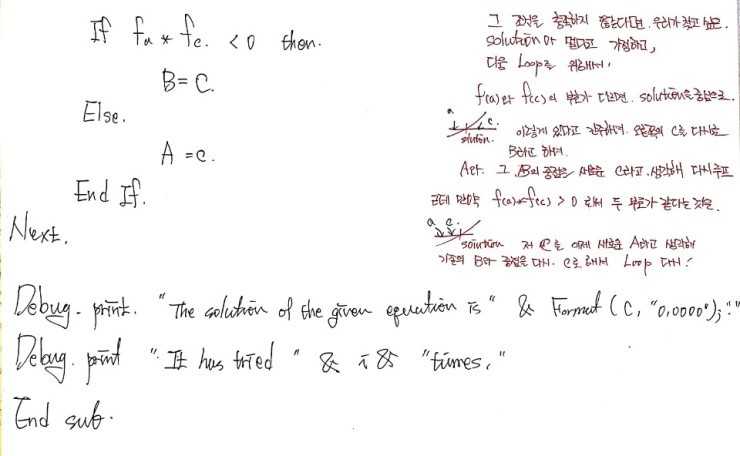 If fa * fc. < 0 then.
B = C.
Else.
A = c.
End If.
Next.
Debug. print. "The solution of the given equation is" & Format (C, "0.0000"); "."
Debug. print "It has tried " & i & "times."
End sub.
그 조건을 충족하지 않는다면, 우리가 찾고 싶은.
solution이 멀다고 가정하고,
다음 Loop를 위해서.
f(a)와 f(c)의 부호가 다르면. solution을 중심으로.
a c.
solution. 이렇게 있다고 간주하여. 오른쪽의 C를 다시
B라고 하며.
A와 그 B의 중점을 새로운 C라고 생각해 다시 루프
근데 만약 f(a)*f(c) > 0 이면 두 부호가 같다는 것은.
a c.
solution 저 C를 이제 새로운 A라고 생각해
기존의 B와 중점을 다시. C로 해서 Loop 다시!